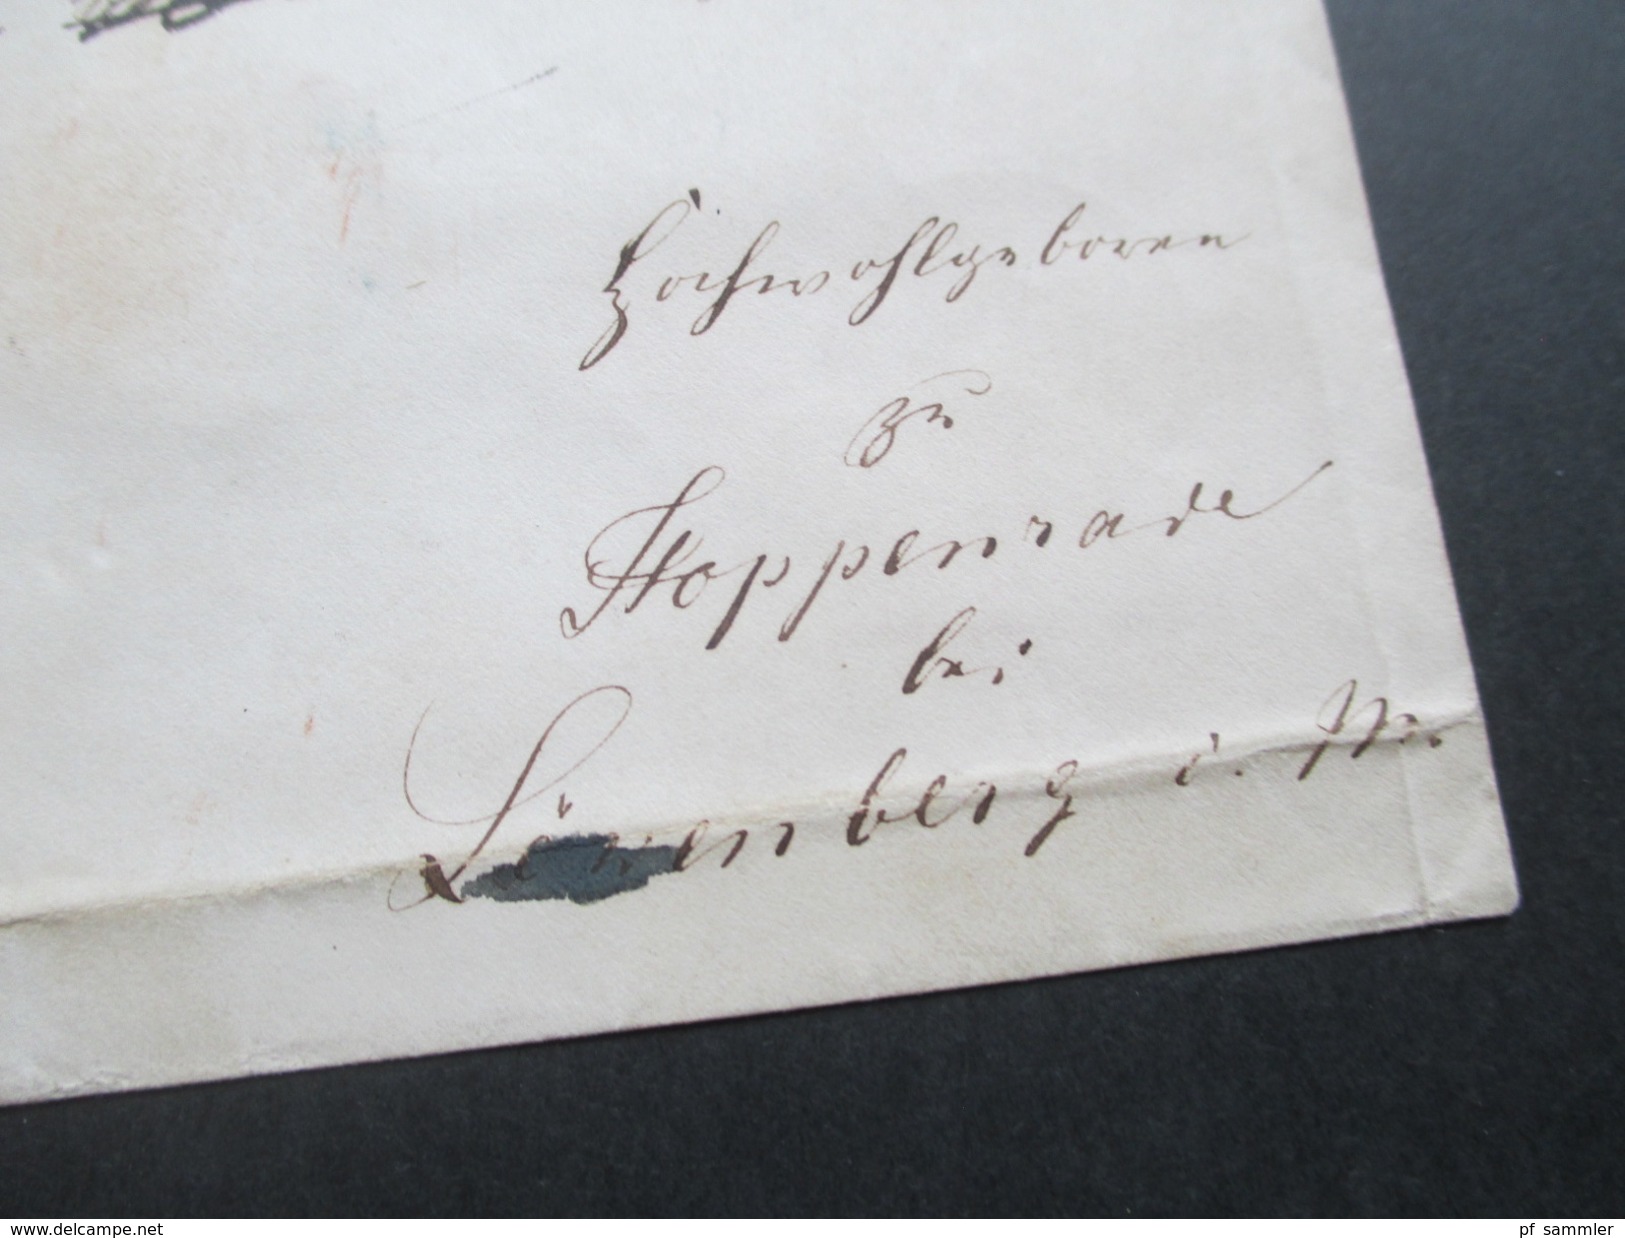 Hochwohlgeboren
zu
Hoppenrade
bei
Löwenberg i. M.
www.delcampe.net
pf_sammler